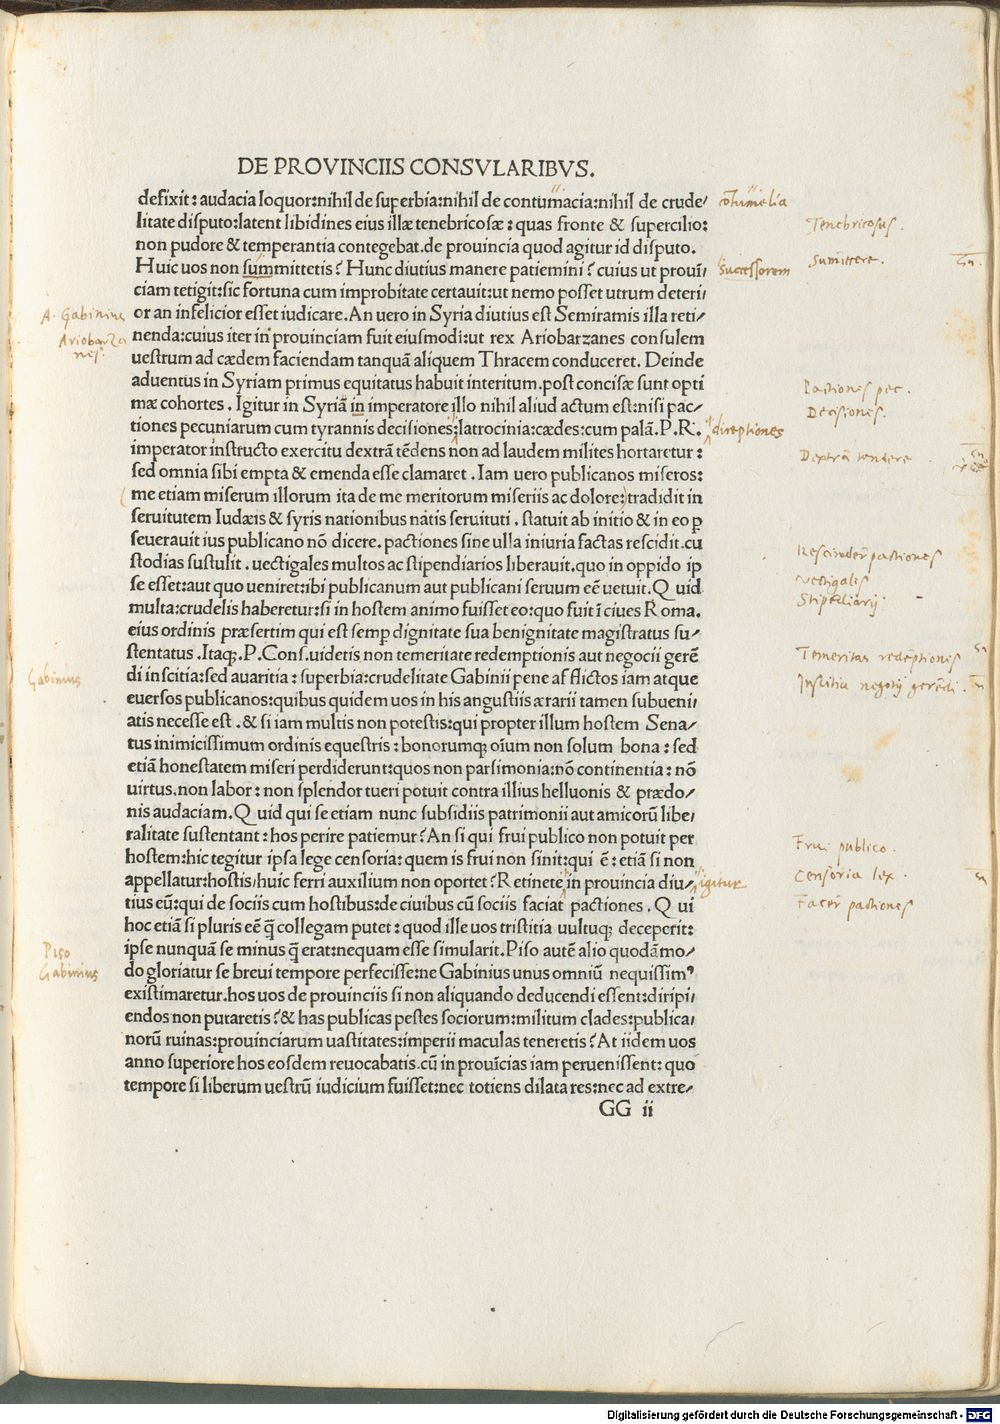 DE PROVINCIIS CONSVLARIBVS.
defixit: audacia loquor:nihil de superbia:nihil de contumacia:nihil de crude/
litate disputo:latent libidines eius illæ tenebricosæ: quas fronte & supercilio:
non pudore & temperantia contegebat.de prouincia quod agitur id disputo.
Huic uos non summittetis? Hunc diutius manere patiemini? cuius ut prouī/
ciam tetigit:sic fortuna cum improbitate certauit:ut nemo posset utrum deteri/
or an infelicior esset iudicare.An uero in Syria diutius est Semiramis illa reti/
nenda:cuius iter in prouinciam fuit eiusmodi:ut rex Ariobarzanes consulem
uestrum ad cædem faciendam tanquā aliquem Thracem conduceret. Deinde
aduentus in Syriam primus equitatus habuit interitum.post concisæ sunt opti
mæ cohortes. Igitur in Syriā in imperatore illo nihil aliud actum est:nisi pac/
tiones pecuniarum cum tyrannis decisiones:latrocinia:cædes:cum palā.P.R.
imperator instructo exercitu dextrā tēdens non ad laudem milites hortaretur:
sed omnia sibi empta & emenda esse clamaret. Iam uero publicanos miseros:
me etiam miserum illorum ita de me meritorum miseriis ac dolore:tradidit in
seruitutem Iudæis & syris nationibus natis seruituti. statuit ab initio & in eo ꝑ
seuerauit ius publicano nō dicere. pactiones sine ulla iniuria factas rescidit.cu
stodias sustulit. uectigales multos ac stipendiarios liberauit.quo in oppido ip
se esset:aut quo ueniret:ibi publicanum aut publicani seruum eē uetuit.Quid
multa:crudelis haberetur:si in hostem animo fuisset eo:quo fuit ī ciues Roma.
eius ordinis præsertim qui est semꝑ dignitate sua benignitate magistratus su/
stentatus.Itaq;.P.Cons.uidetis non temeritate redemptionis aut negocii gerē
di inscitia:sed auaritia: superbia:crudelitate Gabinii pene afflictos iam atque
euersos publicanos:quibus quidem uos in his angustiis ærarii tamen subueni/
atis necesse est.& si iam multis non potestis:qui propter illum hostem Sena/
tus inimicissimum ordinis equestris: bonorumq; oīum non solum bona: sed
etiā honestatem miseri perdiderunt:quos non parsimonia:nō continentia: nō
uirtus.non labor: non splendor tueri potuit contra illius helluonis & prædo/
nis audaciam.Quid qui se etiam nunc subsidiis patrimonii aut amicorū libe/
ralitate sustentant: hos perire patiemur?An si qui frui publico non potuit per
hostem:hic tegitur ipsa lege censoria: quem is frui non sinit:qui ē: etiā si non
appellatur:hostis/huic ferri auxilium non oportet?Retinete in prouincia diu/
tius eū:qui de sociis cum hostibus:de ciuibus cū sociis faciat pactiones. Qui
hoc etiā si pluris eē q̄ collegam putet: quod ille uos tristitia uultuq; deceperit:
ipse nunquā se minus q̄ erat:nequam esse simularit.Piso autē alio quodā mo/
do gloriatur se breui tempore perfecisse:ne Gabinius unus omniū nequissimꝰ
existimaretur.hos uos de prouinciis si non aliquando deducendi essent:diripi/
endos non putaretis?& has publicas pestes sociorum:militum clades:publica/
norū ruinas:prouinciarum uastitates:imperii maculas teneretis?At iidem uos
anno superiore hos eosdem reuocabatis.cū in prouīcias iam peruenissent: quo
tempore si liberum uestrū iudicium fuisset:nec totiens dilata res:nec ad extre/
GG ii
Tenebricosus.
Successorem
Sumittere.
A. Gabinius
Ariobarza
nes.
Pactiones pec.
Decisiones.
direptiones
Dextrā tendere
Rescinder pactiones
Vectigalis
Stipēdiarij
Temeritas redēptionis
Inscitia negotij gerēdi.
Gabinius
Frui publico.
Censoria lex.
igitur
Facer pactiones
Piso
Gabinius
Digitalisierung gefördert durch die Deutsche Forschungsgemeinschaft - DFG